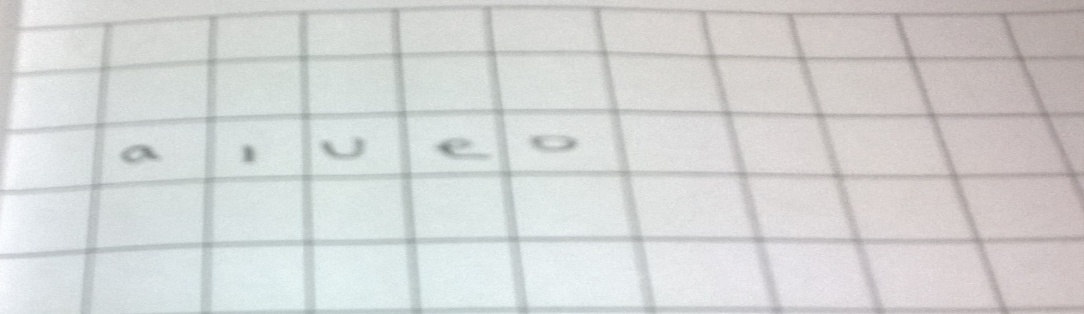 a ı u e o